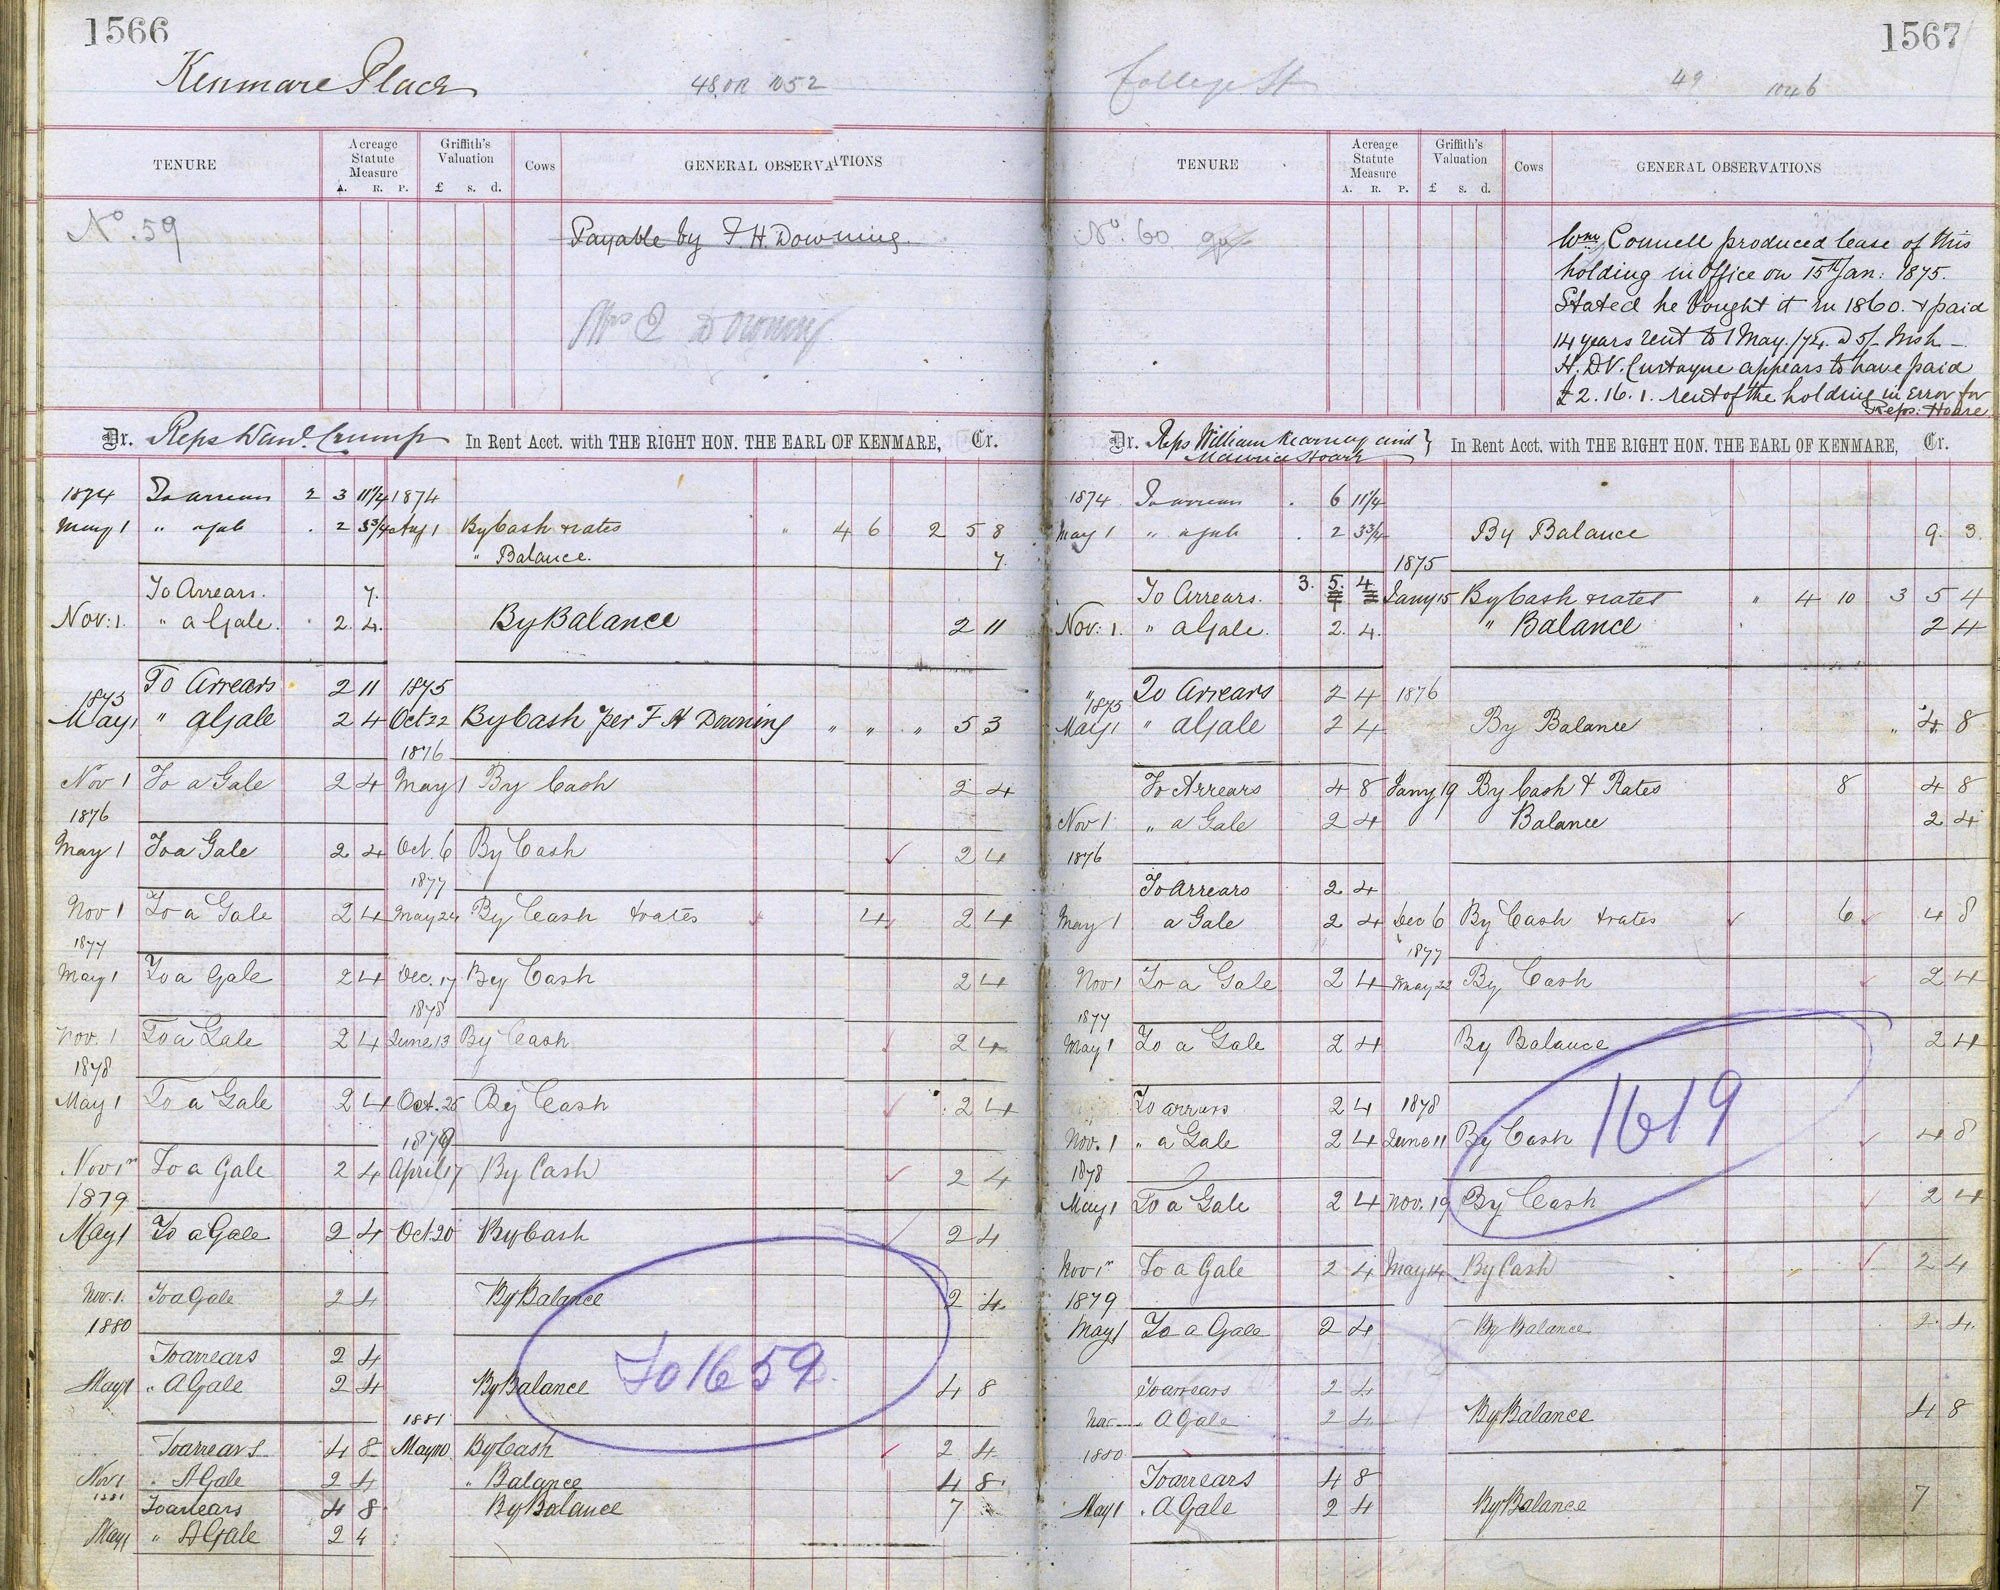 1566
Kenmare Place 48 or 1052
TENURE Acreage Statute Measure A. R. P. Griffith's Valuation £ s. d. Cows GENERAL OBSERVATIONS
No. 59 Payable by F. H. Downing.
Downing
Dr. Reps Danl. Crump In Rent Acct. with THE RIGHT HON. THE EARL OF KENMARE, Cr.
1874 To arrears 2 3 11 1/4 1874
May 1 " a gale . 2 3 3/4 Aug 1 By Cash & rates " 4 6 2 5 8
" Balance. 7.
To Arrears. 7.
Nov: 1. " a Gale. 2. 4. By Balance 2 11
To Arrears 2 11 1875
1875
May 1 " a Gale 2 4 Oct 22 By Cash per F H Downing " " " 5 3
1876
Nov 1 To a Gale 2 4 May 1 By Cash 2 4
1876
May 1 To a Gale 2 4 Oct. 6 By Cash 2 4
1877
Nov 1 To a Gale 2 4 May 24 By Cash & rates 4 2 4
1877
May 1 To a Gale 2 4 Dec. 17 By Cash 2 4
1878
Nov. 1 To a Gale 2 4 June 13 By Cash 2 4
1878
May 1 To a Gale 2 4 Oct. 25 By Cash 2 4
1879
Nov 1 To a Gale 2 4 April 17 By Cash 2 4
1879
May 1 To a Gale 2 4 Oct 20 By Cash 2 4
Nov. 1. To a Gale 2 4 By Balance 2 4
1880
To arrears 2 4
May 1 " A Gale 2 4 By Balance 4 8
To 1659
1881
To arrears 4 8 May 10 By Cash 2 4
Nov 1 " A Gale 2 4 " Balance 4 8
1881
To arrears 4 8 By Balance 7
May 1 " A Gale 2 4
1567
College St 49 1046
TENURE Acreage Statute Measure A. R. P. Griffith's Valuation £ s. d. Cows GENERAL OBSERVATIONS
No. 60
Wm. Connell produced lease of this
holding in Office on 15th Jan: 1875.
Stated he bought it in 1860. & paid
14 years rent to 1 May /74. @ 5/- Irish -
H. D. V. Curtayne appears to have paid
£ 2. 16. 1. rent of the holding in Error for
Reps: Hoare
Dr. Reps William Kearney and Maurice Hoare } In Rent Acct. with THE RIGHT HON. THE EARL OF KENMARE, Cr.
1874 To arrears . 6 11 1/4
May 1 " a gale . 2 3 3/4 By Balance 9. 3.
1875
To Arrears. 3. 5. 4 Jany 15 By Cash & rates " 4 10 3 5 4
Nov: 1. " a Gale. 2. 4. " Balance 2 4
" To Arrears 2 4 1876
1875
May 1 " a Gale 2 4 By Balance " 4. 8
To Arrears 4 8 Jany 19 By Cash & Rates 8 4 8
Nov 1 " a Gale 2 4 Balance 2 4
1876
To Arrears 2 4
May 1 a Gale 2 4 Dec 6 By Cash & rates 6 4 8
1877
Nov 1 To a Gale 2 4 May 22 By Cash 2 4
1877
May 1 To a Gale 2 4 By Balance 2 4
To arrears 2 4 1878
1619
Nov. 1 " a Gale 2 4 June 11 By Cash 4 8
1878
May 1 To a Gale 2 4 Nov. 19 By Cash 2 4
Nov 1 To a Gale 2 4 May 14 By Cash 2 4
1879
May 1 To a Gale 2 4 By Balance 2. 4.
To arrears 2 4
Nov " A Gale 2 4 By Balance 4 8
1880
To arrears 4 8
May 1 " A Gale 2 4 By Balance 7